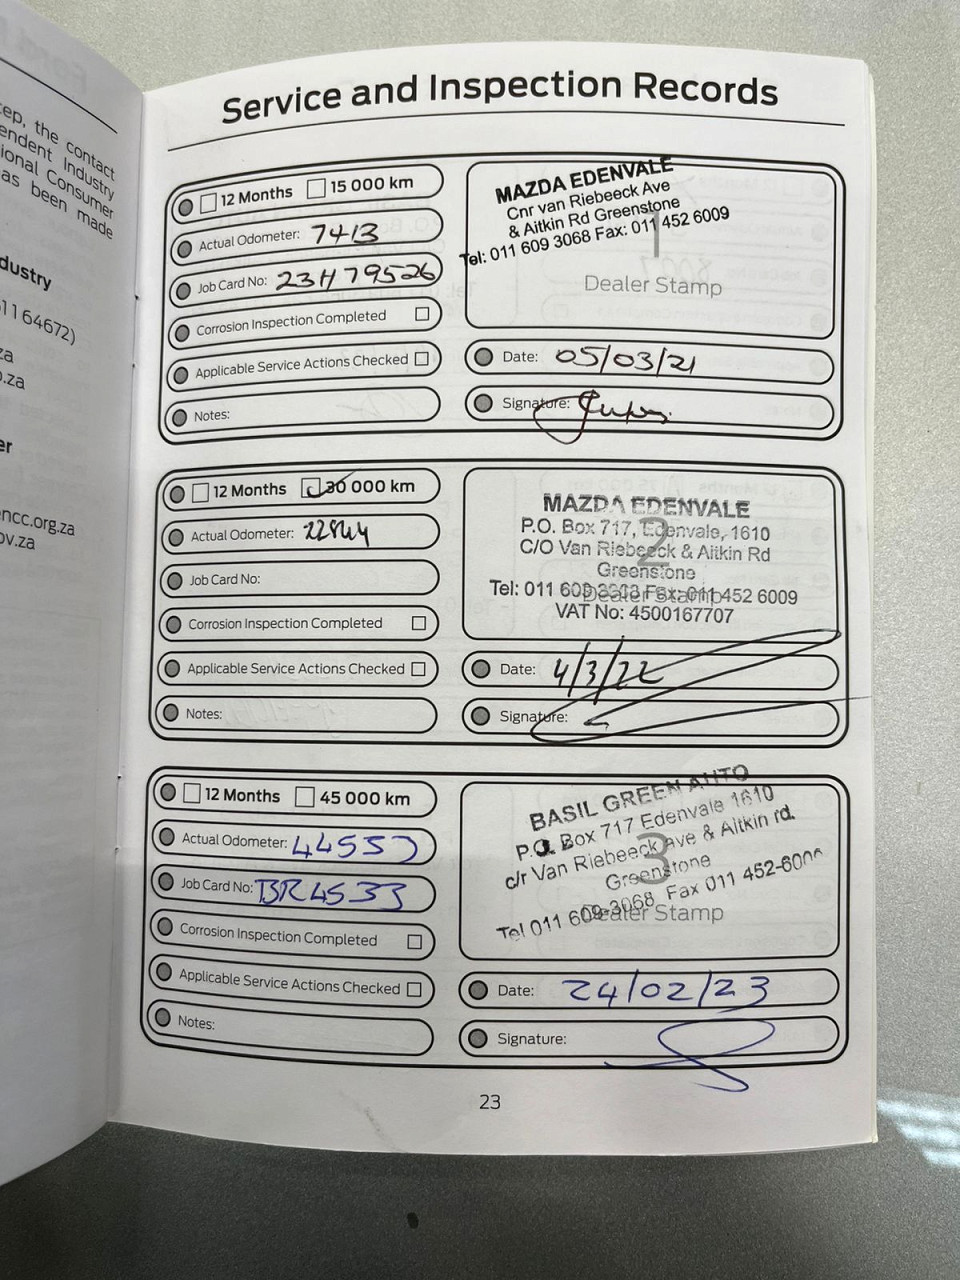 tep, the contact
endent Industry
ional Consumer
as been made
dustry
511 64672)
za
o.za
er
encc.org.za
ov.za
Service and Inspection Records
12 Months 15 000 km
Actual Odometer: 7413
Job Card No: 23H79526
Corrosion Inspection Completed
Applicable Service Actions Checked
Notes:
MAZDA EDENVALE
Cnr van Riebeeck Ave
& Aitkin Rd Greenstone
Tel: 011 609 3068 Fax: 011 452 6009
1
Dealer Stamp
Date: 05/03/21
Signature:
12 Months 30 000 km
Actual Odometer:
Job Card No:
Corrosion Inspection Completed
Applicable Service Actions Checked
Notes:
MAZDA EDENVALE
P.O. Box 717, Edenvale, 1610
C/O Van Riebeeck & Aitkin Rd
Greenstone
Tel: 011 609 3068 Fax: 011 452 6009
VAT No: 4500167707
2
Dealer Stamp
Date: 4/3/22
Signature:
12 Months 45 000 km
Actual Odometer: 44557
Job Card No: BR4533
Corrosion Inspection Completed
Applicable Service Actions Checked
Notes:
BASIL GREEN AUTO
P.O. Box 717 Edenvale 1610
c/r Van Riebeeck ave & Aitkin rd.
Greenstone
Tel 011 609-3068 Fax 011 452-6009
3
Dealer Stamp
Date: 24/02/23
Signature:
23